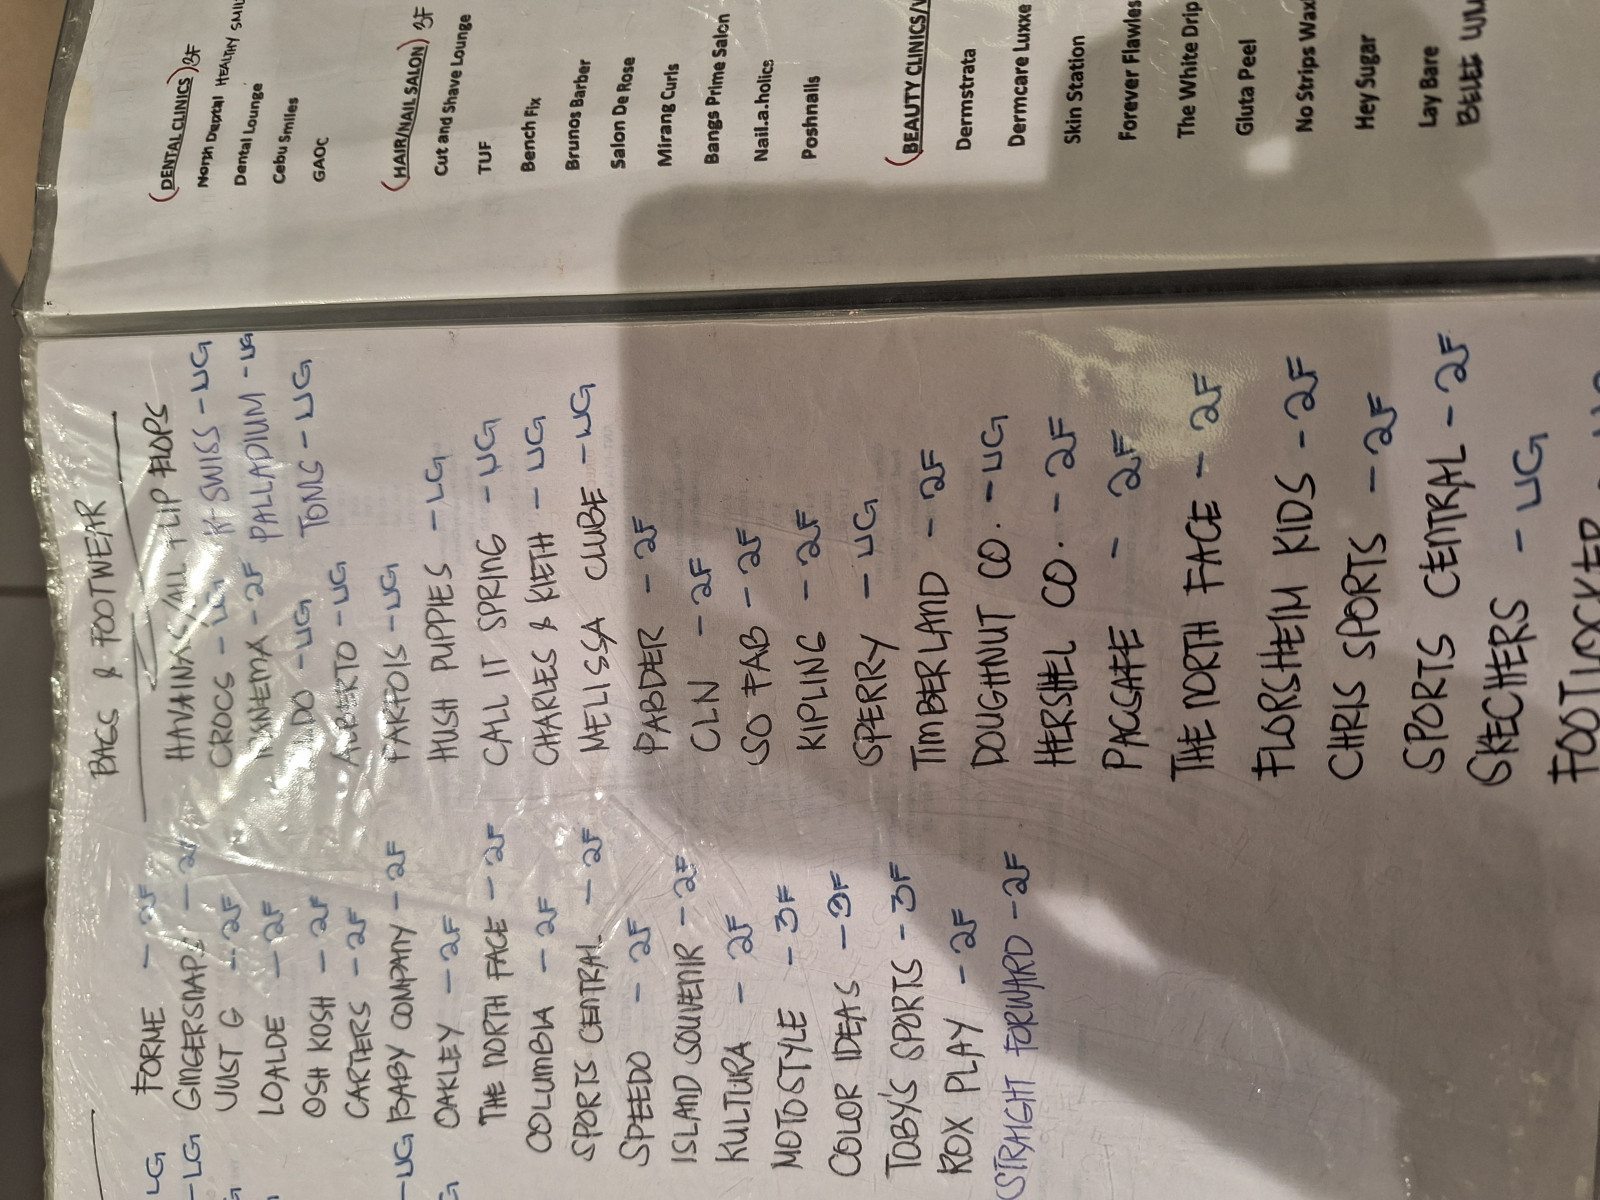 (DENTAL CLINICS) 3F
North Dental HEALTHY
Dental Lounge
Cebu Smiles
GAOC
(HAIR/NAIL SALON) 3F
Cut and Shave Lounge
TUF
Bench Fix
Brunos Barber
Salon De Rose
Mirang Curls
Bangs Prime Salon
Nail.a.holics
Poshnails
(BEAUTY CLINICS/
Dermstrata
Dermcare Luxxe
Skin Station
Forever Flawles
The White Drip
Gluta Peel
No Strips Wax
Hey Sugar
Lay Bare
BAGS & FOOTWEAR
HAVAINAS/ALL FLIP FLOPS
CROCS - UG K-SWISS - UG
- 2F PALLADIUM - UG
- UG TONG - UG
- UG
PARFOIS - UG
HUSH PUPPIES - LG
CALL IT SPRING - UG
CHARLES & KIETH - UG
MELISSA CLUBE - UG
PABDER - 2F
CLN - 2F
SO FAB - 2F
KIPLING - 2F
SPERRY - UG
TIMBERLAND - 2F
DOUGHNUT CO. - UG
HERSHEL CO. - 2F
PACSAFE - 2F
THE NORTH FACE - 2F
FLORSHEIM KIDS - 2F
CHRIS SPORTS - 2F
SPORTS CENTRAL - 2F
SKECHERS - UG
LG
- LG
- UG
FORME - 2F
GINGERSNAPS - 2F
JUST G - 2F
LOALDE - 2F
OSH KOSH - 2F
CARTERS - 2F
BABY COMPANY - 2F
OAKLEY - 2F
THE NORTH FACE - 2F
COLUMBIA - 2F
SPORTS CENTRAL - 2F
SPEEDO - 2F
ISLAND SOUVENIR - 2F
KULTURA - 2F
MOTOSTYLE - 3F
COLOR IDEAS - 3F
TOBY'S SPORTS - 3F
ROX PLAY - 2F
STRAIGHT FORWARD - 2F